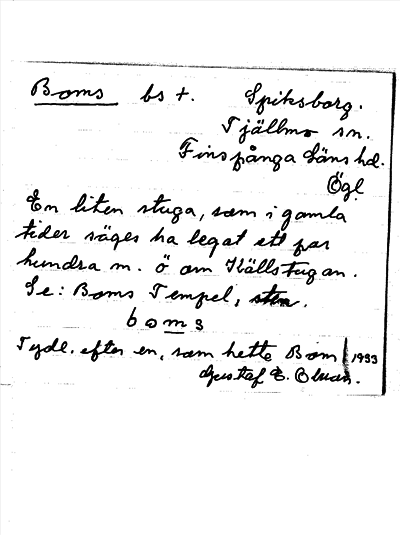 Boms bs +. Spiksborg.
Tjällmo sn.
Finspånga läns hd.
Ögl.
En liten stuga, som i gamla
tider säges ha legat ett par
hundra m. ö om Källstugan.
Se: Boms Tempel, sten.
boms
Tydl. efter en, som hette Bom 1933
Gustaf E.